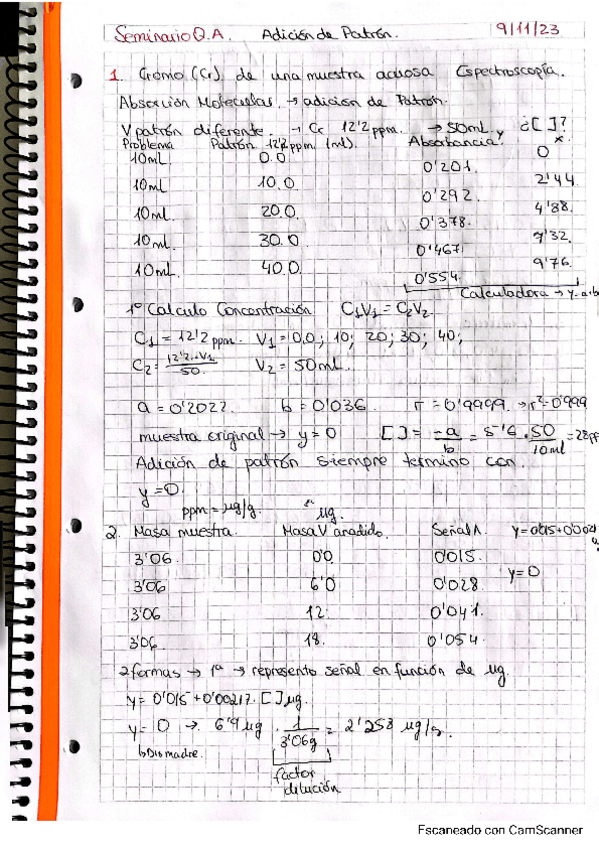 Seminario Q.A. Adición de Patrón. 9/11/23
1. Cromo (Cr) de una muestra acuosa Espectroscopía.
Absorción Molecular. → adición de Patrón.
V patrón diferente. → Cc 12'2 ppm. → 50mL y ¿[ ]?
Problema Patrón 12'2 ppm (ml). Absorbancia. x.
10ml 0.0 0'201. 0
10ml 10.0 0'292. 2'44
10ml. 20.0 0'378. 4'88
10ml. 30.0 0'467. 7'32
10ml. 40.0. 0'554. 9'76.
Calculadora → y=a+b
1º Calculo Concentración C₁V₁ = C₂V₂
C₁ = 12'2 ppm. V₁ = 0,0; 10; 20; 30; 40;
C₂ = 12'2·V₁/50. V₂ = 50mL.
a = 0'2022. b = 0'036 r = 0'9999. → r²=0'999
muestra original → y=0 [ ] = -a/b = 5'6 · 50/10ml = 28pp
Adición de patrón siempre termino con.
y=0.
ppm = µg/g. µg.
2. Masa muestra. Masa V añadido. Señal A. y=0'015+0'0021
3'06. 0'0. 0'015.
3'06 6'0 0'028 y=0
3'06 12. 0'041.
3'06 18. 0'054.
2 formas → 1ª → represento señal en función de µg.
y = 0'015 + 0'00217. [ ] µg.
y = 0 → 6'9 µg · 1/3'06g = 2'258 µg/g.
↳ Dis madre.
factor dilución
Escaneado con CamScanner